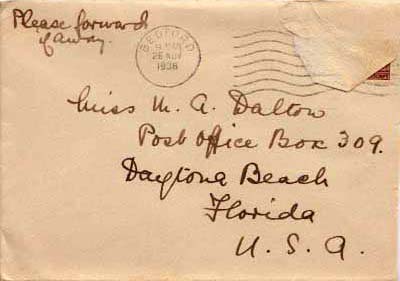 Please forward
if away.
BEDFORD
26 NOV
1936
Miss M. A. Dalton
Post Office Box 309.
Daytona Beach
Florida
U. S. A.